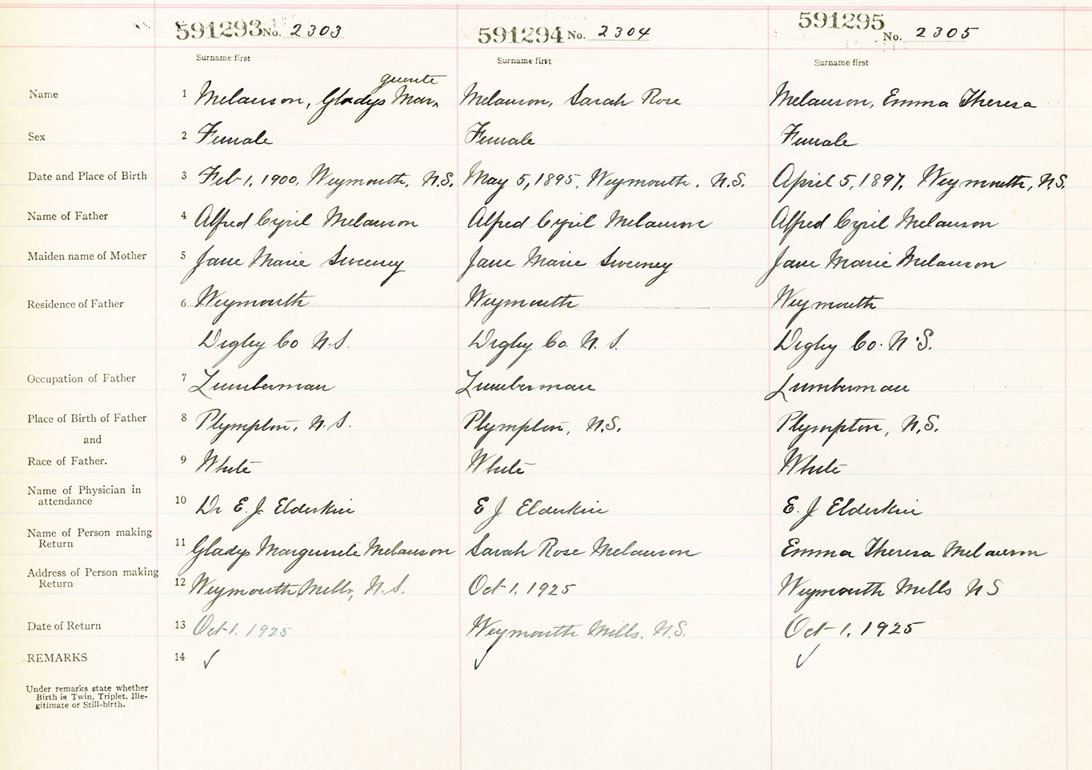 591293 No. 2303 591294 No. 2304 591295 No. 2305
Surname first Surname first Surname first
guerite
Name 1 Melanson, Gladys Mar Melanson, Sarah Rose Melanson, Emma Theresa
Sex 2 Female Female Female
Date and Place of Birth 3 Feb 1, 1900, Weymouth, N.S. May 5, 1895, Weymouth, N.S. April 5, 1897, Weymouth, N.S.
Name of Father 4 Alfred Cyril Melanson Alfred Cyril Melanson Alfred Cyril Melanson
Maiden name of Mother 5 Jane Marie Sweeney Jane Marie Sweeney Jane Marie Melanson
Residence of Father 6 Weymouth Weymouth Weymouth
Digby Co N.S. Digby Co. N.S. Digby Co. N.S.
Occupation of Father 7 Lumberman Lumberman Lumberman
Place of Birth of Father 8 Plympton, N.S. Plympton, N.S. Plympton, N.S.
and
Race of Father. 9 White White White
Name of Physician in
attendance 10 Dr E. J. Elderkin E J Elderkin E. J Elderkin
Name of Person making
Return 11 Gladys Marguerite Melanson Sarah Rose Melanson Emma Theresa Melanson
Address of Person making
Return 12 Weymouth Mills, N.S. Oct 1, 1925 Weymouth Mills NS
Date of Return 13 Oct 1, 1925 Weymouth Mills, N.S. Oct 1, 1925
REMARKS 14
Under remarks state whether
Birth is Twin, Triplet, Ille-
gitimate or Still-birth.